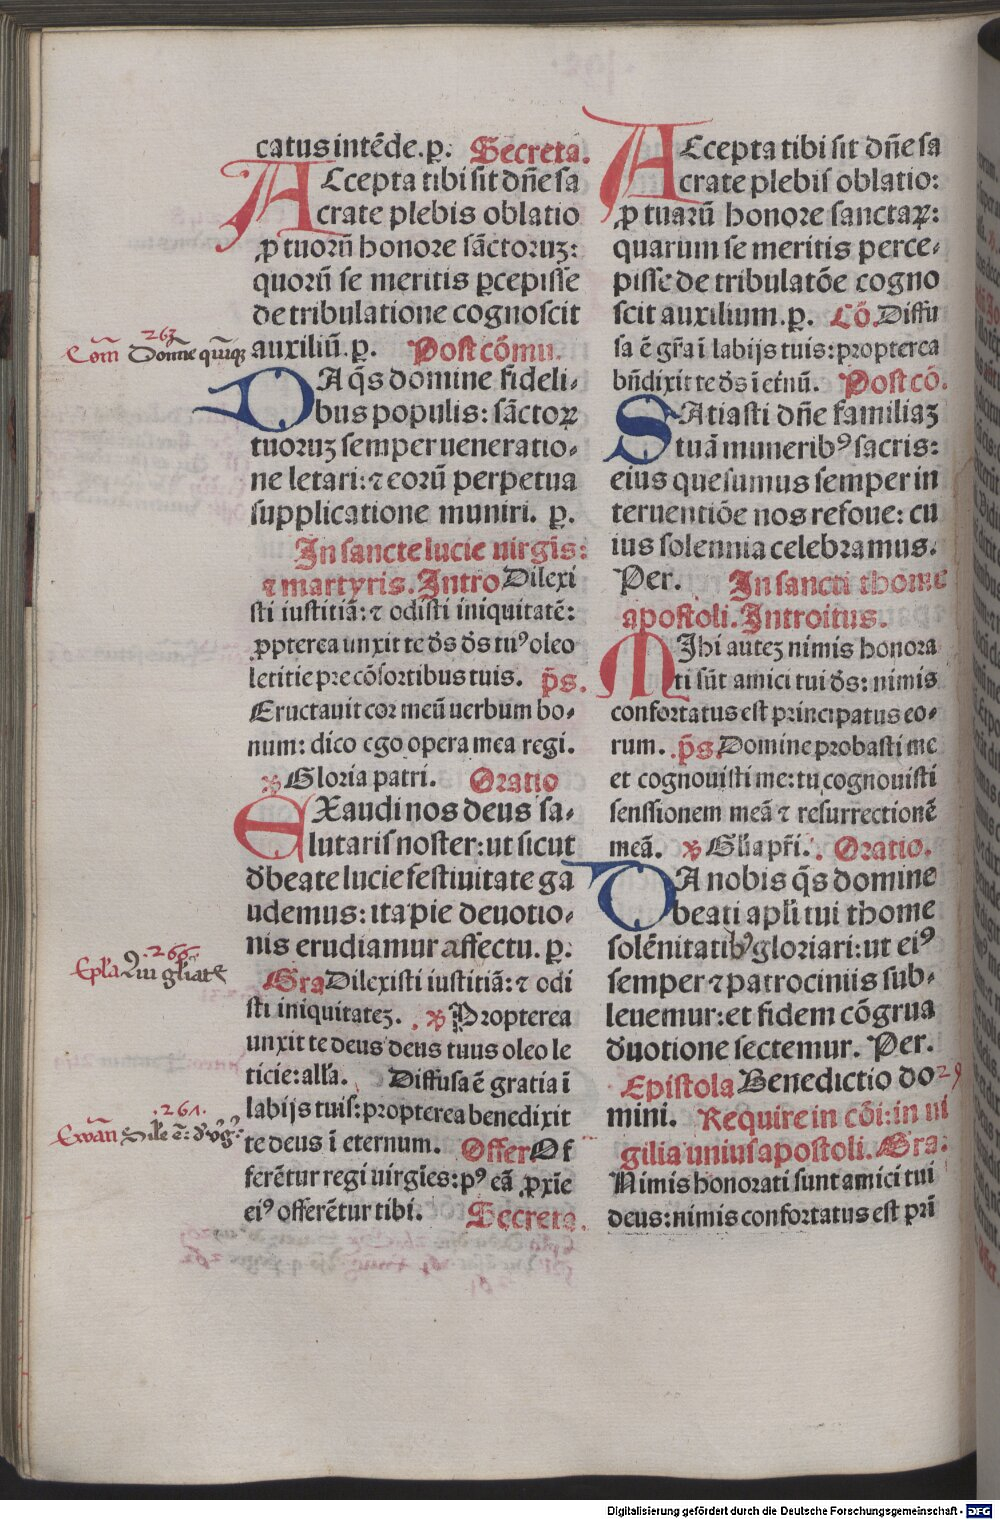 catus intēde.ꝑ. Secreta.
ACcepta tibi sit dn̄e sa
crate plebis oblatio
ꝓ tuorū honore sāctoruꝫ:
quorū se meritis ꝑcepisse
de tribulatione cognoscit
auxiliū.ꝑ. Post cōmu.
DA q̄s domine fideli⸗
bus populis: sāctoꝝ
tuoruꝫ semper ueneratio⸗
ne letari:⁊ eorū perpetua
supplicatione muniri. ꝑ.
In sancte lucie uirgīs:
⁊ martyris. Intro Dilexi
sti iustitiā:⁊ odisti iniquitatē:
ꝓpterea unxit te ds̄ ds̄ tuꝰ oleo
letitie pre cōsortibus tuis. p̄s.
Eructauit cor meū uerbum bo⸗
num: dico ego opera mea regi.
℣ Gloria patri. Oratio
EXaudi nos deus sa⸗
lutaris noster: ut sicut
d̄ beate lucie festiuitate ga
udemus: ita pie deuotio⸗
nis erudiamur affectu. ꝑ.
Gra Dilexisti iustitiā:⁊ odi
sti iniquitateꝫ. ℣ Propterea
unxit te deus deus tuus oleo le
ticie: alľa. Diffusa ē gratia ī
labijs tuis: propterea benedixit
te deus ī eternum. Offer Of
ferētur regi uirgīes: pꝰ eā ꝓxīe
eiꝰ offerētur tibi. Secreta.
ACcepta tibi sit dn̄e sa
crate plebis oblatio:
ꝓ tuarū honore sanctaꝝ:
quarum se meritis perce⸗
pisse de tribulatōe cogno
scit auxilium.ꝑ. Cō. Diffu
sa ē gr̄a ī labijs tuis: propterea
bn̄dixit te ds̄ ī etnū. Post cō.
SAtiasti dn̄e familiaꝫ
tuā muneribꝰ sacris:
eius quesumus semper in
teruentiōe nos refoue: cu
ius solennia celebramus.
Per. In sancti thome
apostoli. Introitus.
MIhi auteꝫ nimis honora
ti sūt amici tui ds̄: nimis
confortatus est principatus eo⸗
rum. p̄s. Domine probasti me
et cognouisti me: tu cognouisti
senssionem meā ⁊ resurrectionē
meā. ℣ Glīa pr̄i. Oratio.
DA nobis q̄s domine
beati apľi tui thome
solēnitatibꝰ gloriari: ut eiꝰ
semper ⁊ patrociniis sub⸗
leuemur: et fidem cōgrua
d̄uotione sectemur. Per.
Epistola Benedictio do 29
mini. Require in cōi: in ui
gilia unius apostoli. Gra:
Nimis honorati sunt amici tui
deus: nimis confortatus est pri
263
Com̄ Domīe quīqꝫ
266
Epl̄a Qui gl̄iat
261.
Ewān Sīle ē:
Digitalisierung gefördert durch die Deutsche Forschungsgemeinschaft - DFG